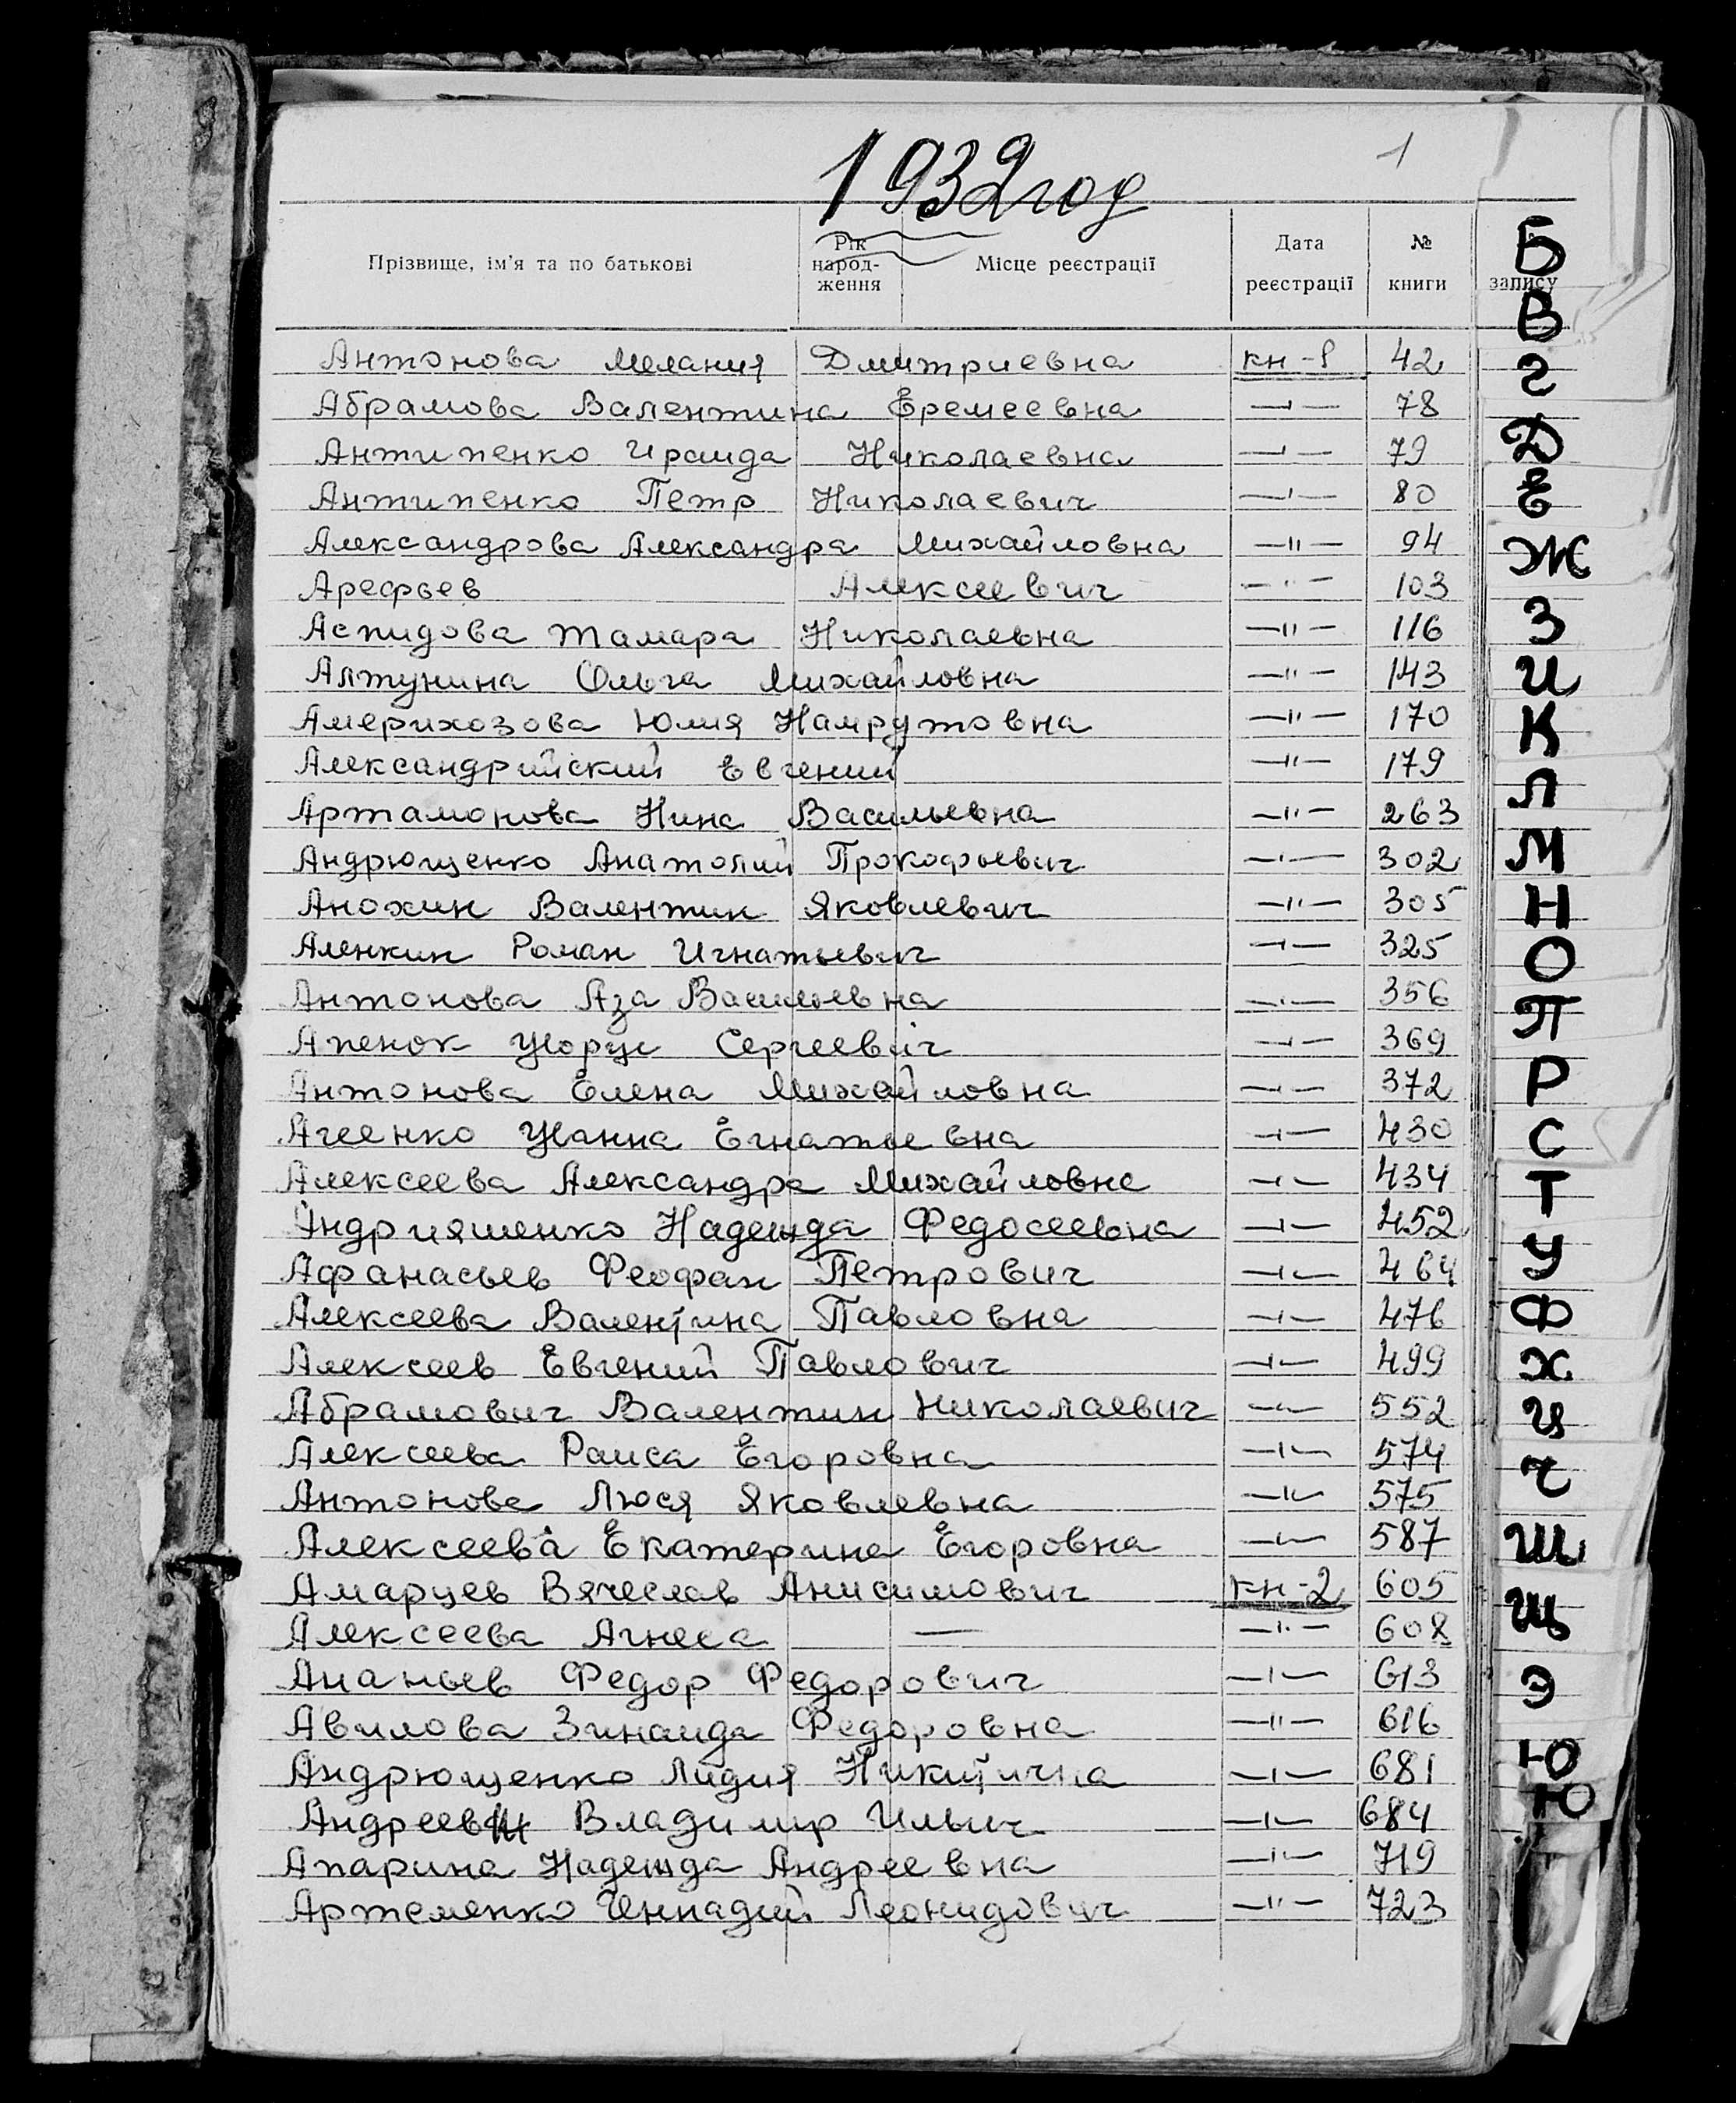 1932 год
1
Прізвище, ім'я та по батькові | Рік народження | Місце реєстрації | Дата реєстрації | № книги | запису
Антонова Мелания Дмитриевна кн-1 42
Абрамова Валентина Еремеевна —ı— 78
Антипенко Ираида Николаевна —ı— 79
Антипенко Петр Николаевич —ı— 80
Александрова Александра Михайловна —"— 94
Арефьев Алексеевич —"— 103
Аспидова Тамара Николаевна —"— 116
Алтунина Ольга Михайловна —"— 143
Америхозова Юлия Намрутовна —"— 170
Александрийский Евгений —"— 179
Артамонова Нина Васильевна —"— 263
Андрющенко Анатолий Прокофьевич —ı— 302
Анохин Валентин Яковлевич —"— 305
Аленкин Роман Игнатьевич —ı— 325
Антонова Аза Васильевна —ı— 356
Апенок Жорж Сергеевич —ı— 369
Антонова Елена Михайловна —ı— 372
Агеенко Жанна Егнатьевна —ı— 430
Алексеева Александра Михайловна —ı— 434
Андрияшенко Надежда Федосеевна —ı— 452
Афанасьев Феофан Петрович —ı— 464
Алексеева Валентина Павловна —ı— 476
Алексеев Евгений Павлович —ı— 499
Абрамович Валентин Николаевич —ı— 552
Алексеева Раиса Егоровна —ı— 574
Антонова Люся Яковлевна —ı— 575
Алексеева Екатерина Егоровна —ı— 587
Амарцев Вячеслав Анисимович кн-2 605
Алексеева Агнеса — —ı— 608
Ананьев Федор Федорович —ı— 613
Авилова Зинаида Федоровна —"— 616
Андрющенко Лидия Никитична —ı— 681
Андреев Владимир Ильич —ı— 684
Апарина Надежда Андреевна —ı— 719
Артеменко Геннадий Леонидович —"— 723
Б
В
Г
Д
Е
Ж
З
И
К
Л
М
Н
О
П
Р
С
Т
У
Ф
Х
Ц
Ч
Ш
Щ
Э
Ю
Ю